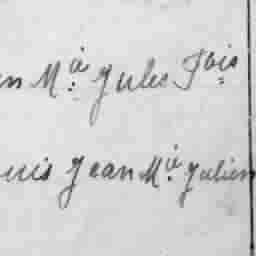 en Mia Jules Fois
ouis Jean Mia Julien